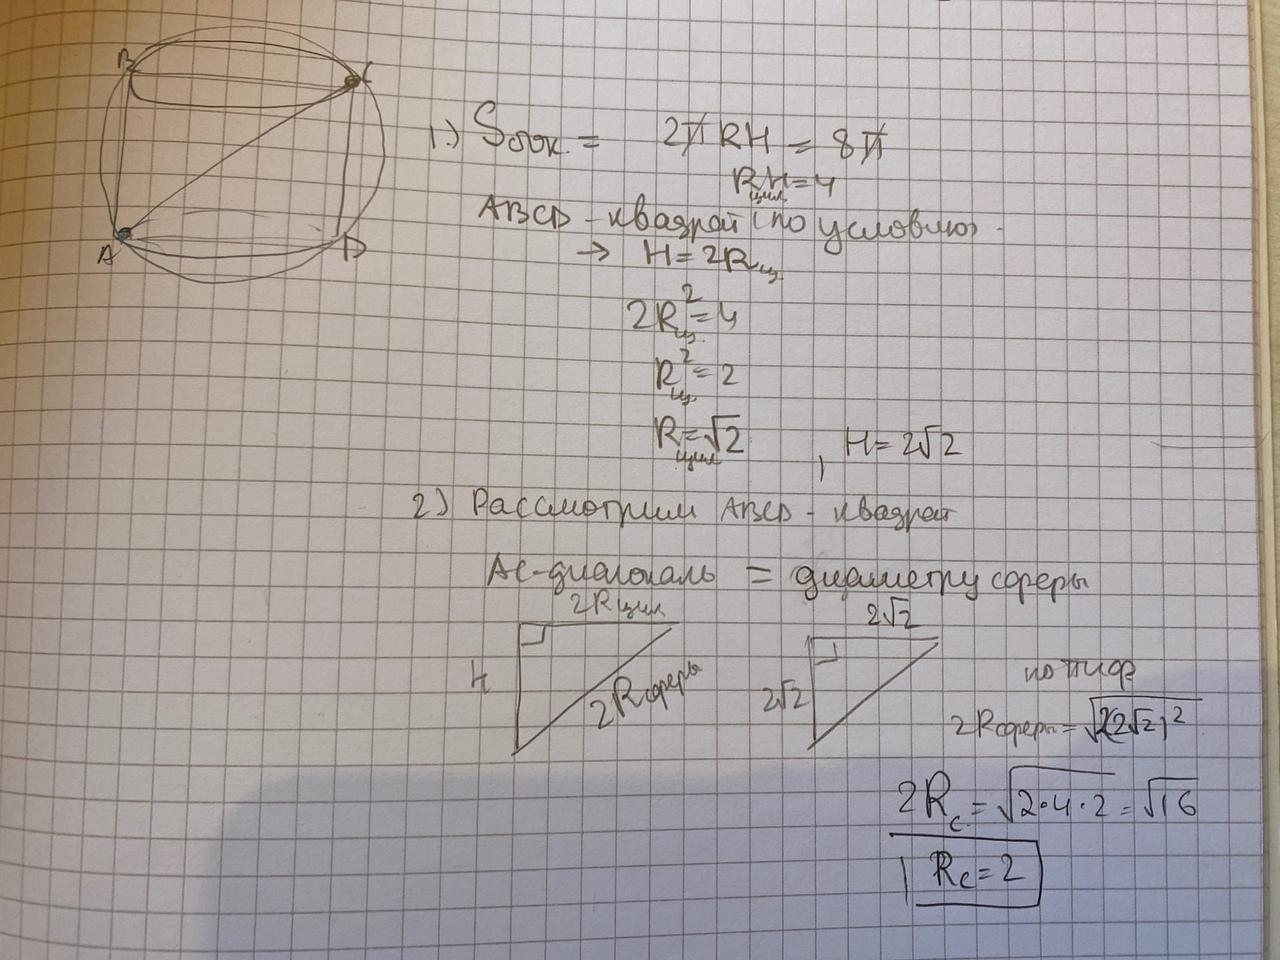 B C
A D
1.) Sбок. = 2πRH = 8π
Rцил H = 4
ABCD - квадрат (по условию)
→ H = 2Rц.
2Rц.² = 4
Rц.² = 2
Rцил = √2 , H = 2√2
2) Рассмотрим ABCD - квадрат
AC - диагональ = диаметру сферы
2Rцил
H
2Rсферы
2√2
2√2
по т Пиф
2Rсферы = √2(2√2)²
2Rc = √2·4·2 = √16
Rc = 2